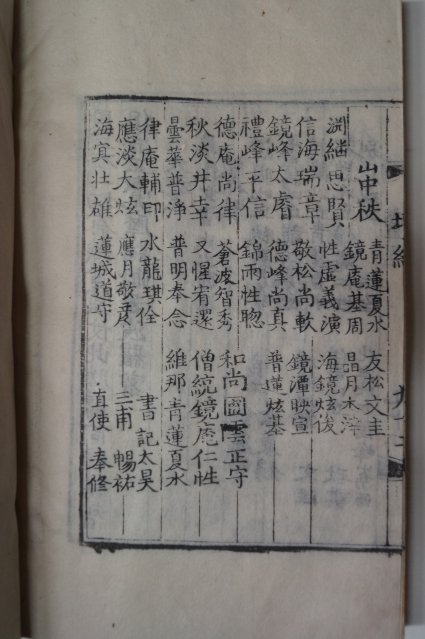 壇經 九十二
山中秩
青蓮夏水 友松文圭
淵 思賢 鏡庵基周 晶月 
信海瑞章 性虛義演 海鏡炫俊
鏡峰太睿 敬松尚軟 鏡潭映宣
禮峰平信 德峰尚真 普蓮炫基
德庵尚律 錦雨性聰
秋淡井幸 蒼波智秀 和尚圓雲正守
曇華普淨 又惺宥還 僧統鏡庵仁性
律庵輔印 普明奉念 維那青蓮夏水
應淡大炫 水龍琪佺 書記太昊
海冥壯雄 應月敬 三甫暢祐
蓮城道守 直使奉修